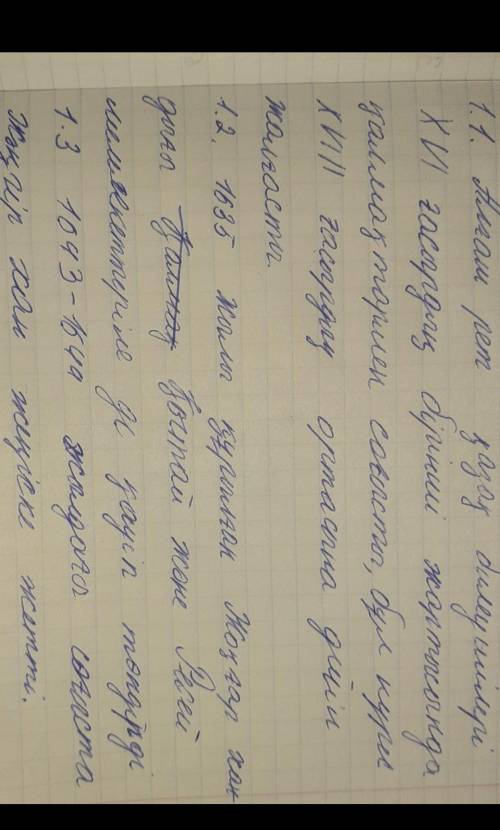 1.1. Алғаш рет қазақ билеушілері
XVI ғасырдың бірінші жартысында
қалмақтармен соғысты, бұл күрес
XVIII ғасырдың ортасына дейін
жалғасты.
1.2. 1635 жылы құрылған Жоңғар хан
дығы Қытай және Ресей
мемлекеттеріне де қауіп төндірді
1.3 1643-1644 жылдағы соғыста
Жәңгір хан жеңіске жетті.